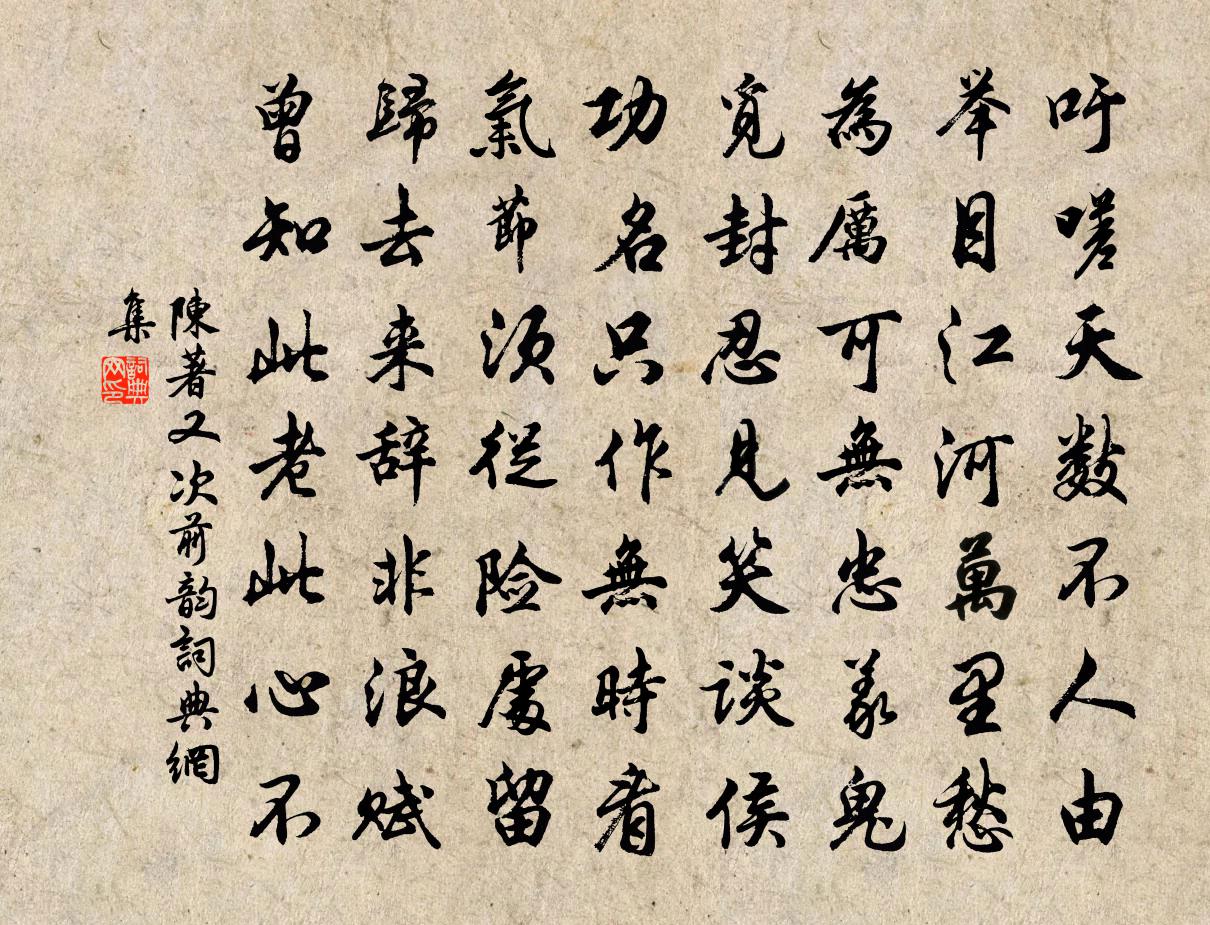 吁嗟天数不人由
举目江河萬里愁
為厲可無忠義鬼
覓封忍見笑谈侯
功名只作無時看
氣節須從险處留
歸去来辞非浪赋
曾知此老此心不
陳著又次前韵詞典網
集
詞典网印